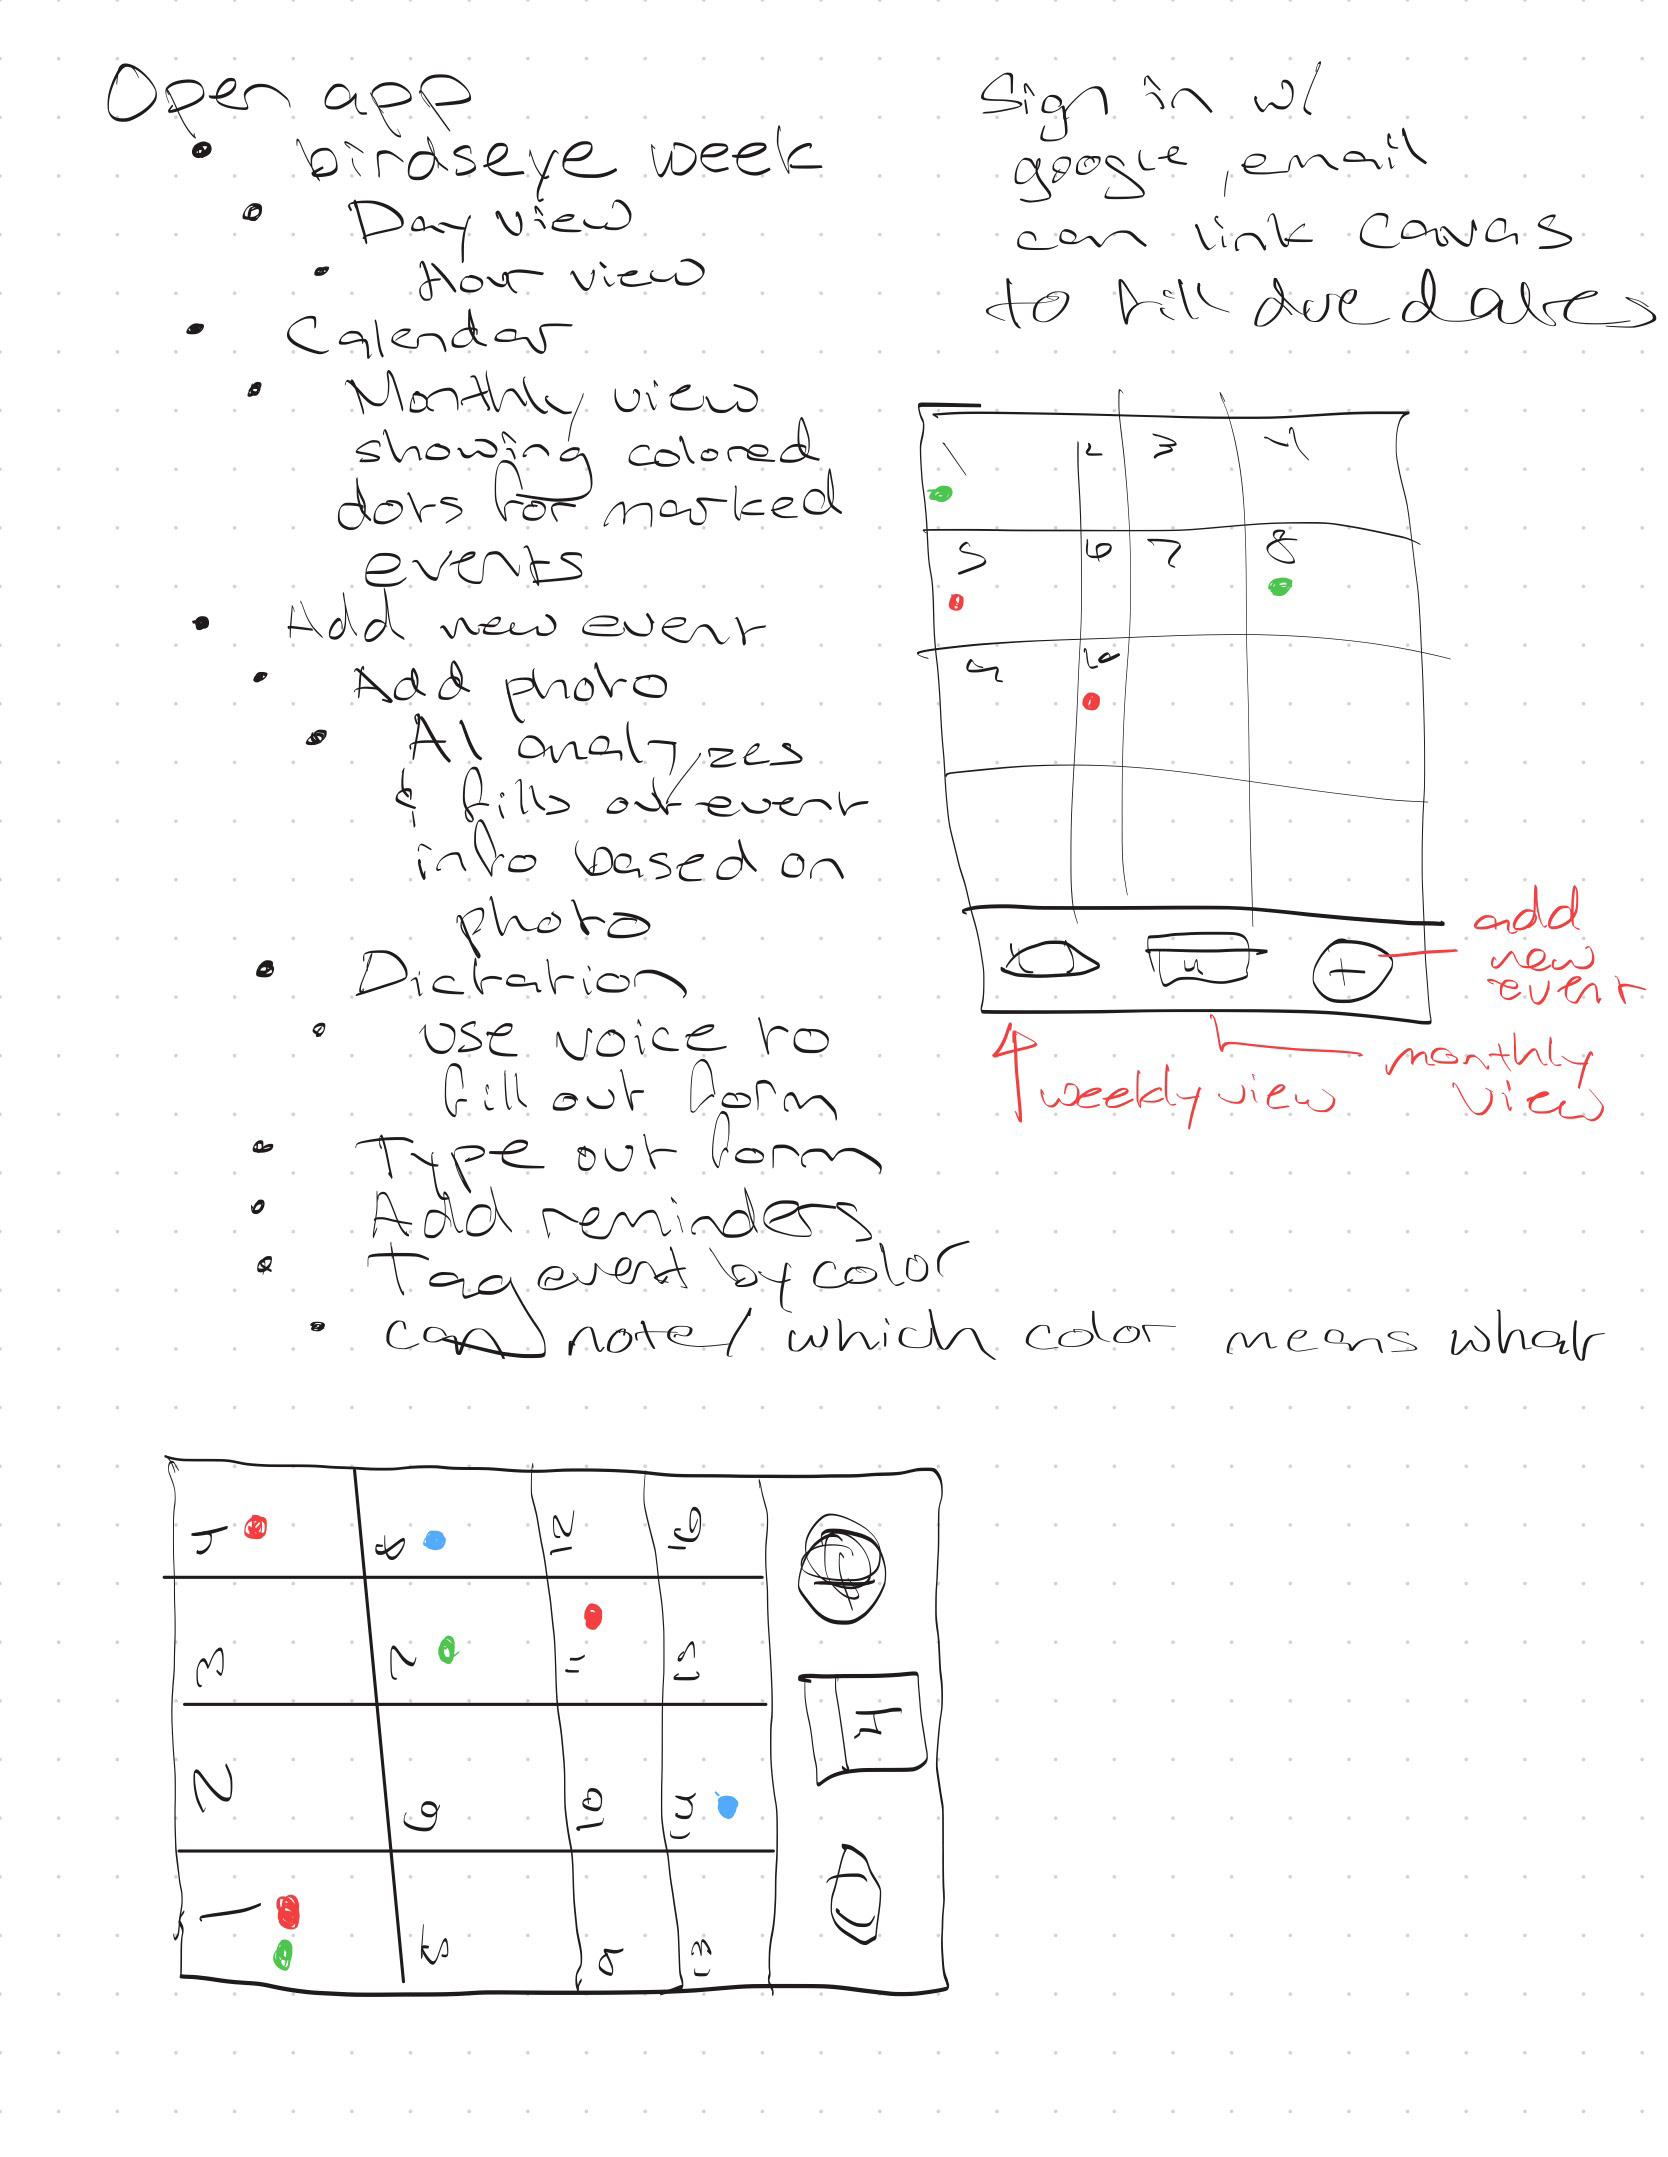 Open app
• birdseye week
• Day view
• Hour view
• Calendar
• Monthly view
showing colored
dots for marked
events
• Add new event
• Add photo
• AI analyzes
& fills out event
info based on
photo
• Dictation
• use voice to
fill out form
• Type out form
• Add reminders
• Tag event by color
• can note / which color means what
Sign in w/
google, email
can link canvas
to fill due dates
1 2 3 4
5 6 7 8
9 10
4 +
add
new
event
monthly
view
weekly view
1 2 3 4
5 6 7 8
9 10 11 12
13 14 15 16
4